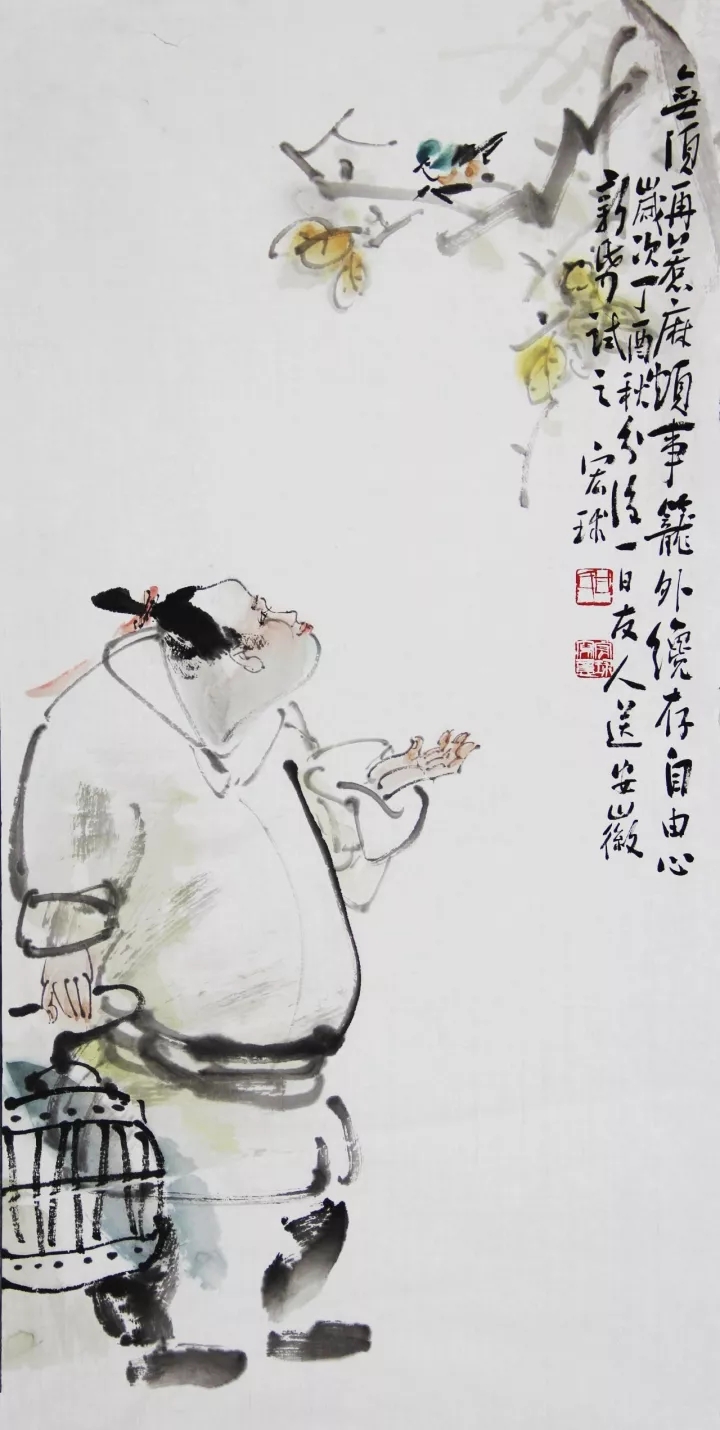 無須再惹麻煩事籠外纔存自由心
歲次丁酉秋分後一日友人送安徽
新帋試之 宏球